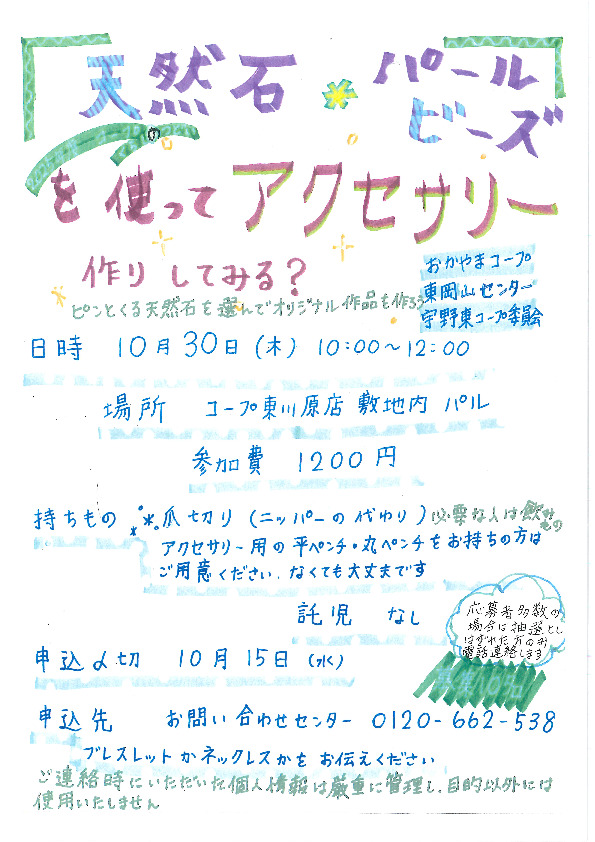 天然石 * パール
ビーズ
を使ってアクセサリー
作りしてみる?
おかやまコープ
東岡山センター
宇野東コープ委員会
ピンとくる天然石を選んでオリジナル作品も作ろう
日時 10月30日(木) 10:00~12:00
場所 コープ東川原店 敷地内 パル
参加費 1200円
持ちもの 爪切り(ニッパーの代わり)必要な人は飲みもの
アクセサリー用の平ペンチ・丸ペンチをお持ちの方は
ご用意ください。なくても大丈まです
託児 なし
応募者多数の
場合は抽選とし
はずれた方のみ
電話連絡します
申込〆切 10月15日(水)
申込先 お問い合わせセンター 0120-662-538
ブレスレットかネックレスかをお伝えください
ご連絡時にいただいた個人情報は厳重に管理し、目的以外には
使用いたしません